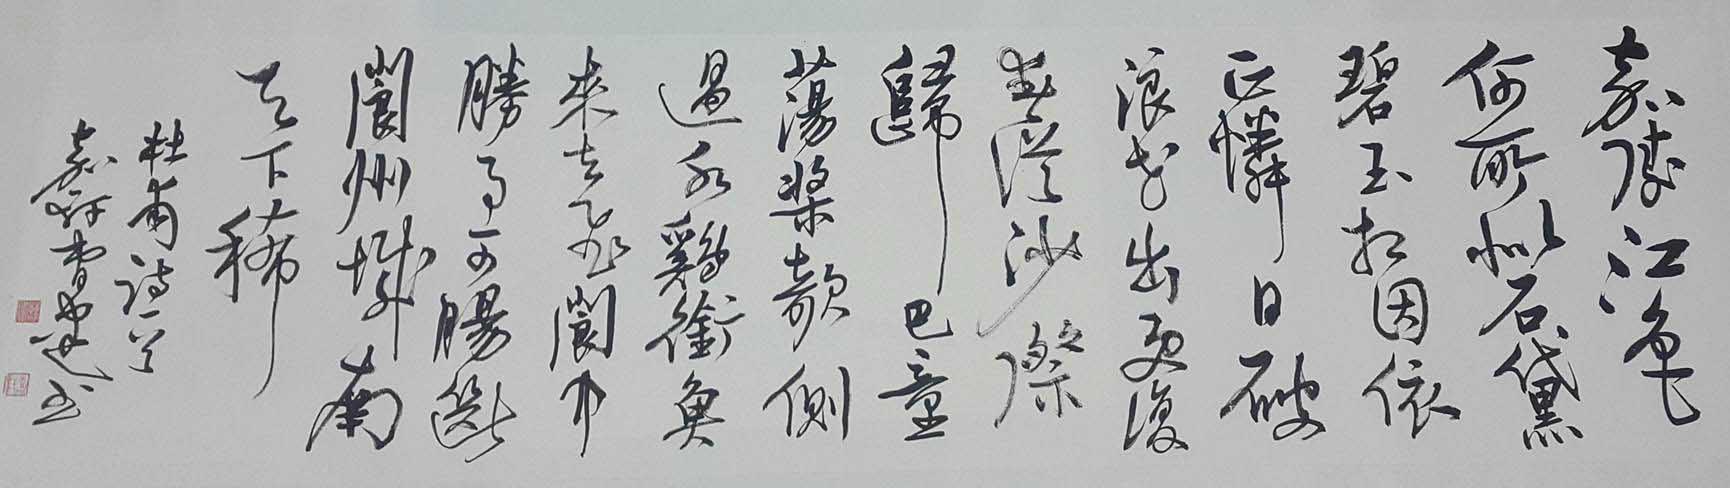 嘉陵江色
何所似石黛
碧玉相因依
正憐日破
浪花出更復
春從沙際
歸巴童
蕩槳欹側
過水鷄銜魚
來去飛閬中
勝事可腸斷
閬州城南
天下稀
杜甫詩一首
嘉書